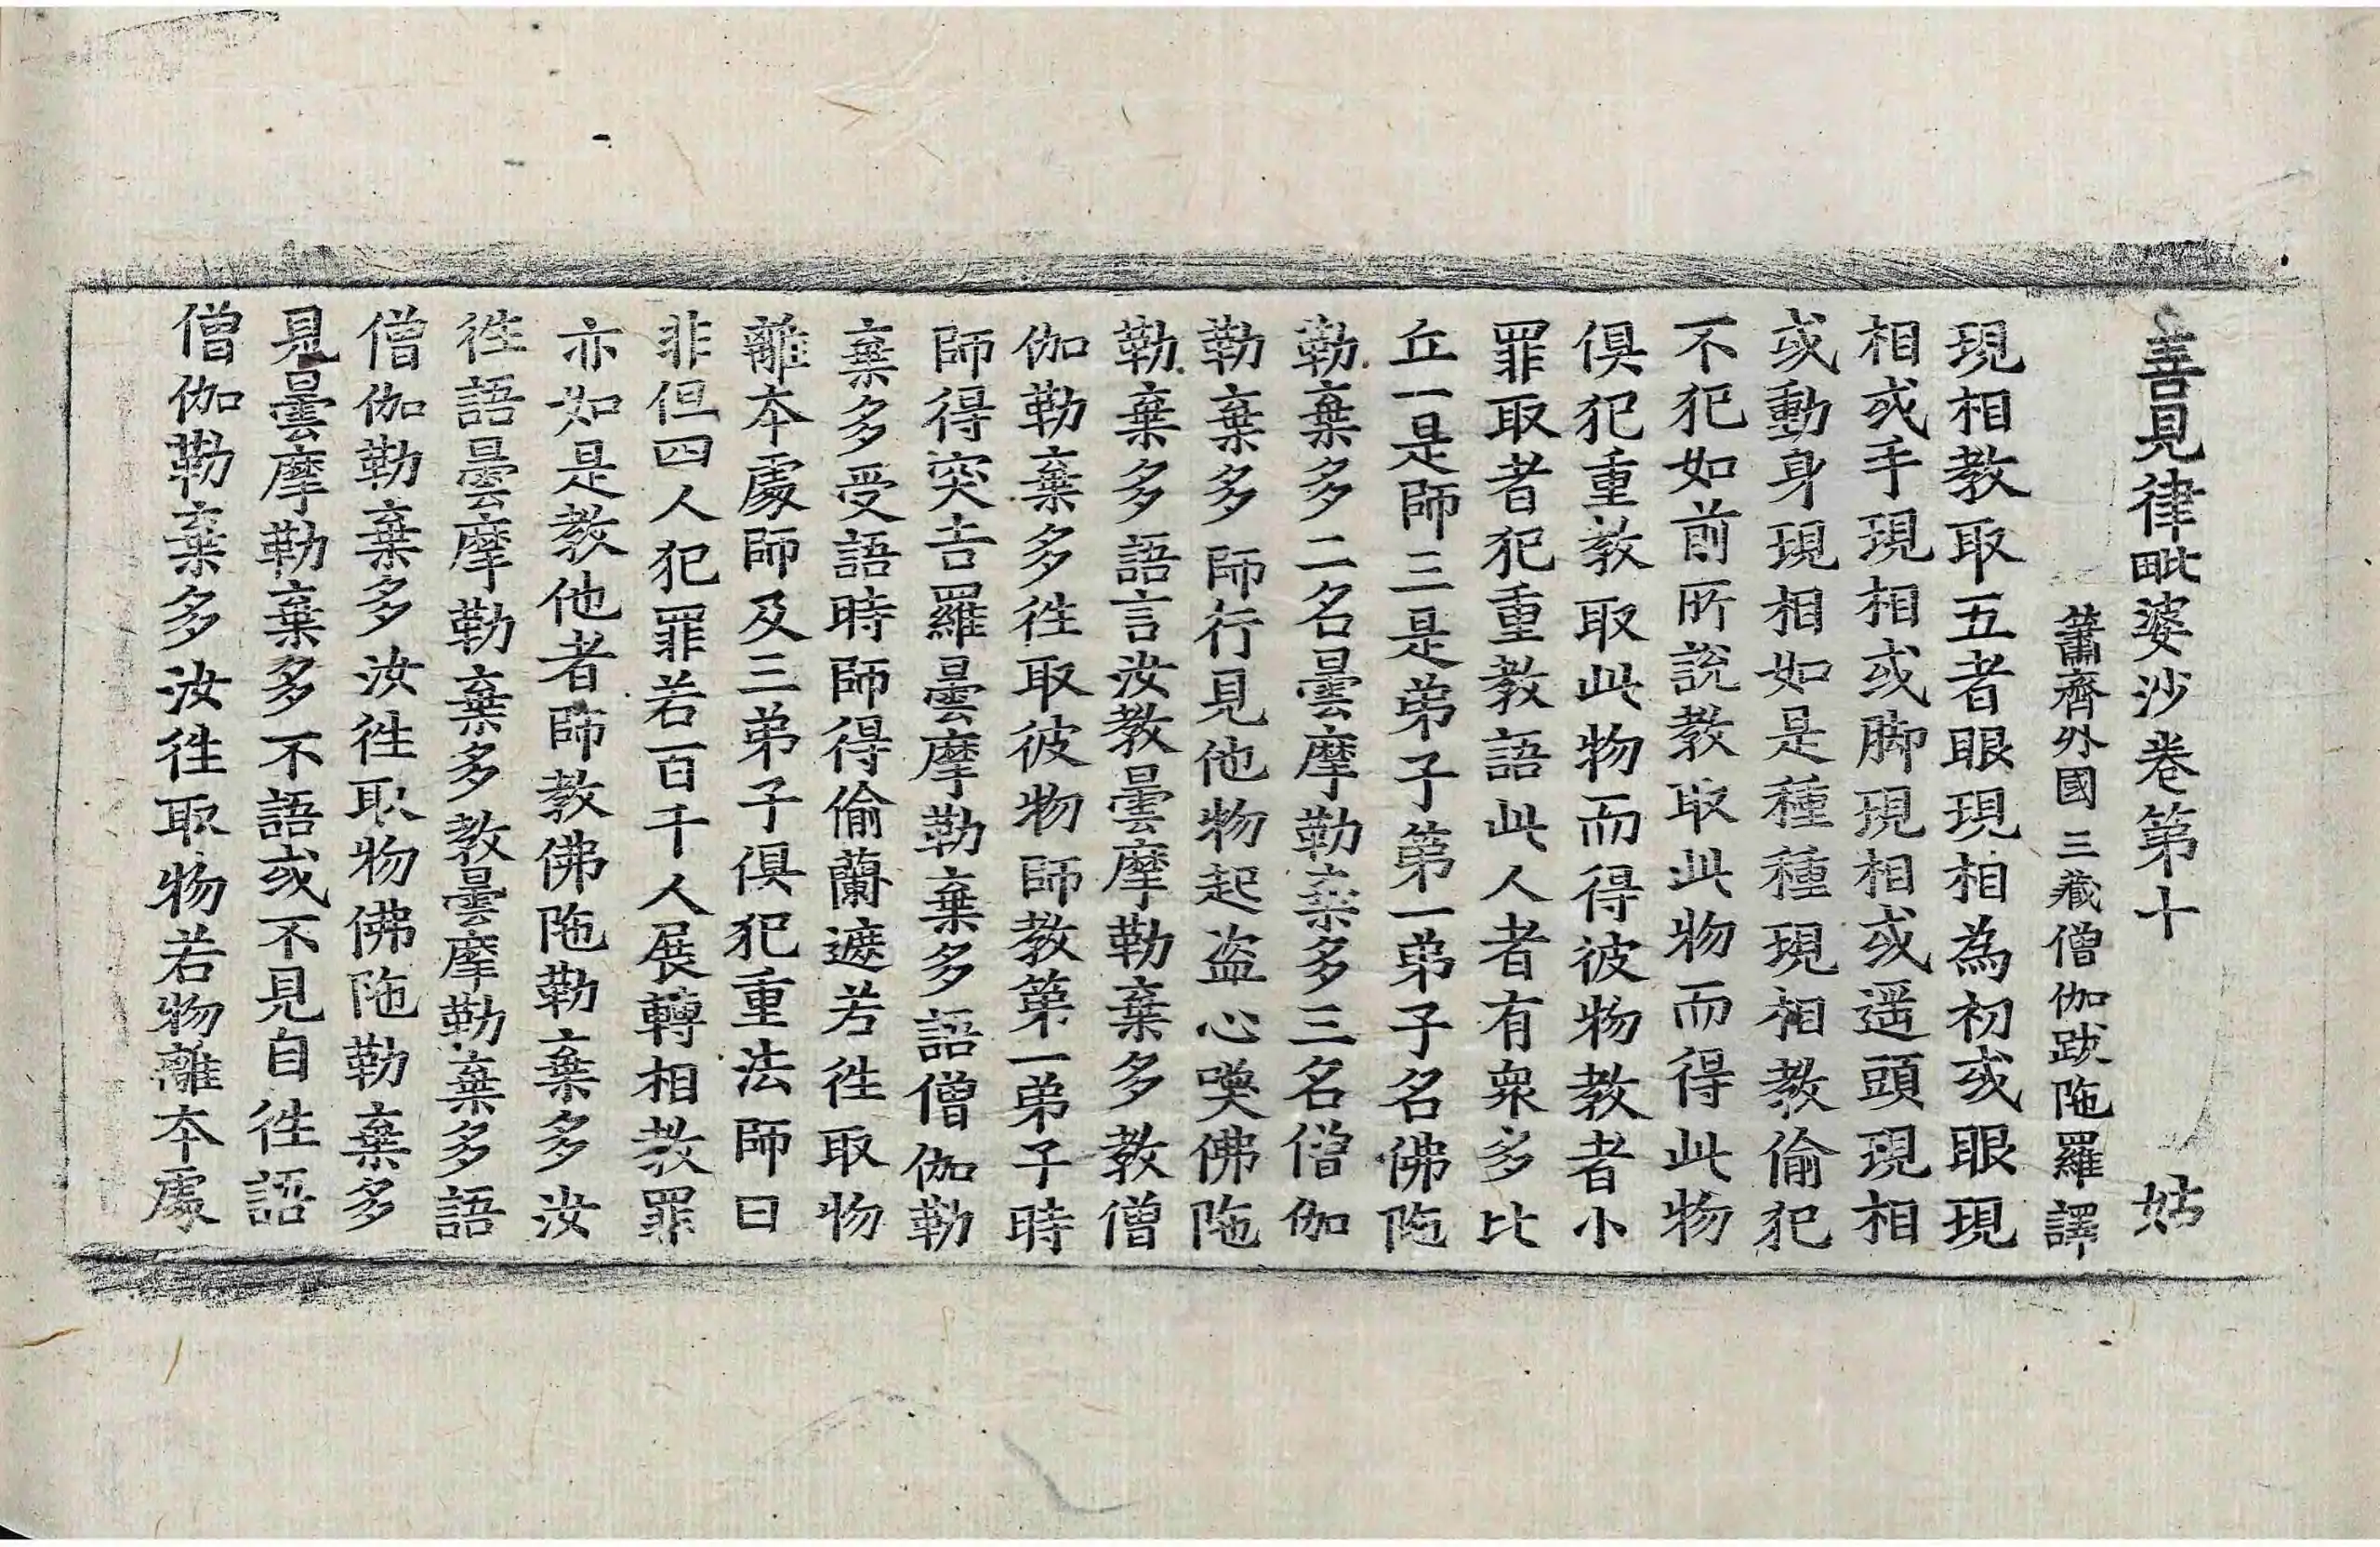 善見律毗婆沙卷第十　姑
蕭齊外國三藏僧伽跋陁羅譯
現相教取五者眼現相為初或眼現
相或手現相或脚現相或遥頭現相
或動身現相如是種種現相教偷犯
不犯如前所說教取此物而得此物
俱犯重教取此物而得彼物教者小
罪取者犯重教語此人者有衆多比
丘一是師三是弟子第一弟子名佛陁
勒棄多二名曇摩勒棄多三名僧伽
勒棄多師行見他物起盗心喚佛陁
勒棄多語言汝教曇摩勒棄多教僧
伽勒棄多徃取彼物師教第一弟子時
師得突吉羅曇摩勒棄多語僧伽勒
棄多受語時師得偷蘭遮若徃取物
離本處師及三弟子俱犯重法師曰
非但四人犯罪若百千人展轉相教罪
亦如是教他者師教佛陁勒棄多汝
徃語曇摩勒棄多教曇摩勒棄多語
僧伽勒棄多汝徃取物佛陁勒棄多
見曇摩勒棄多不語或不見自徃語
僧伽勒棄多汝徃取物若物離本處